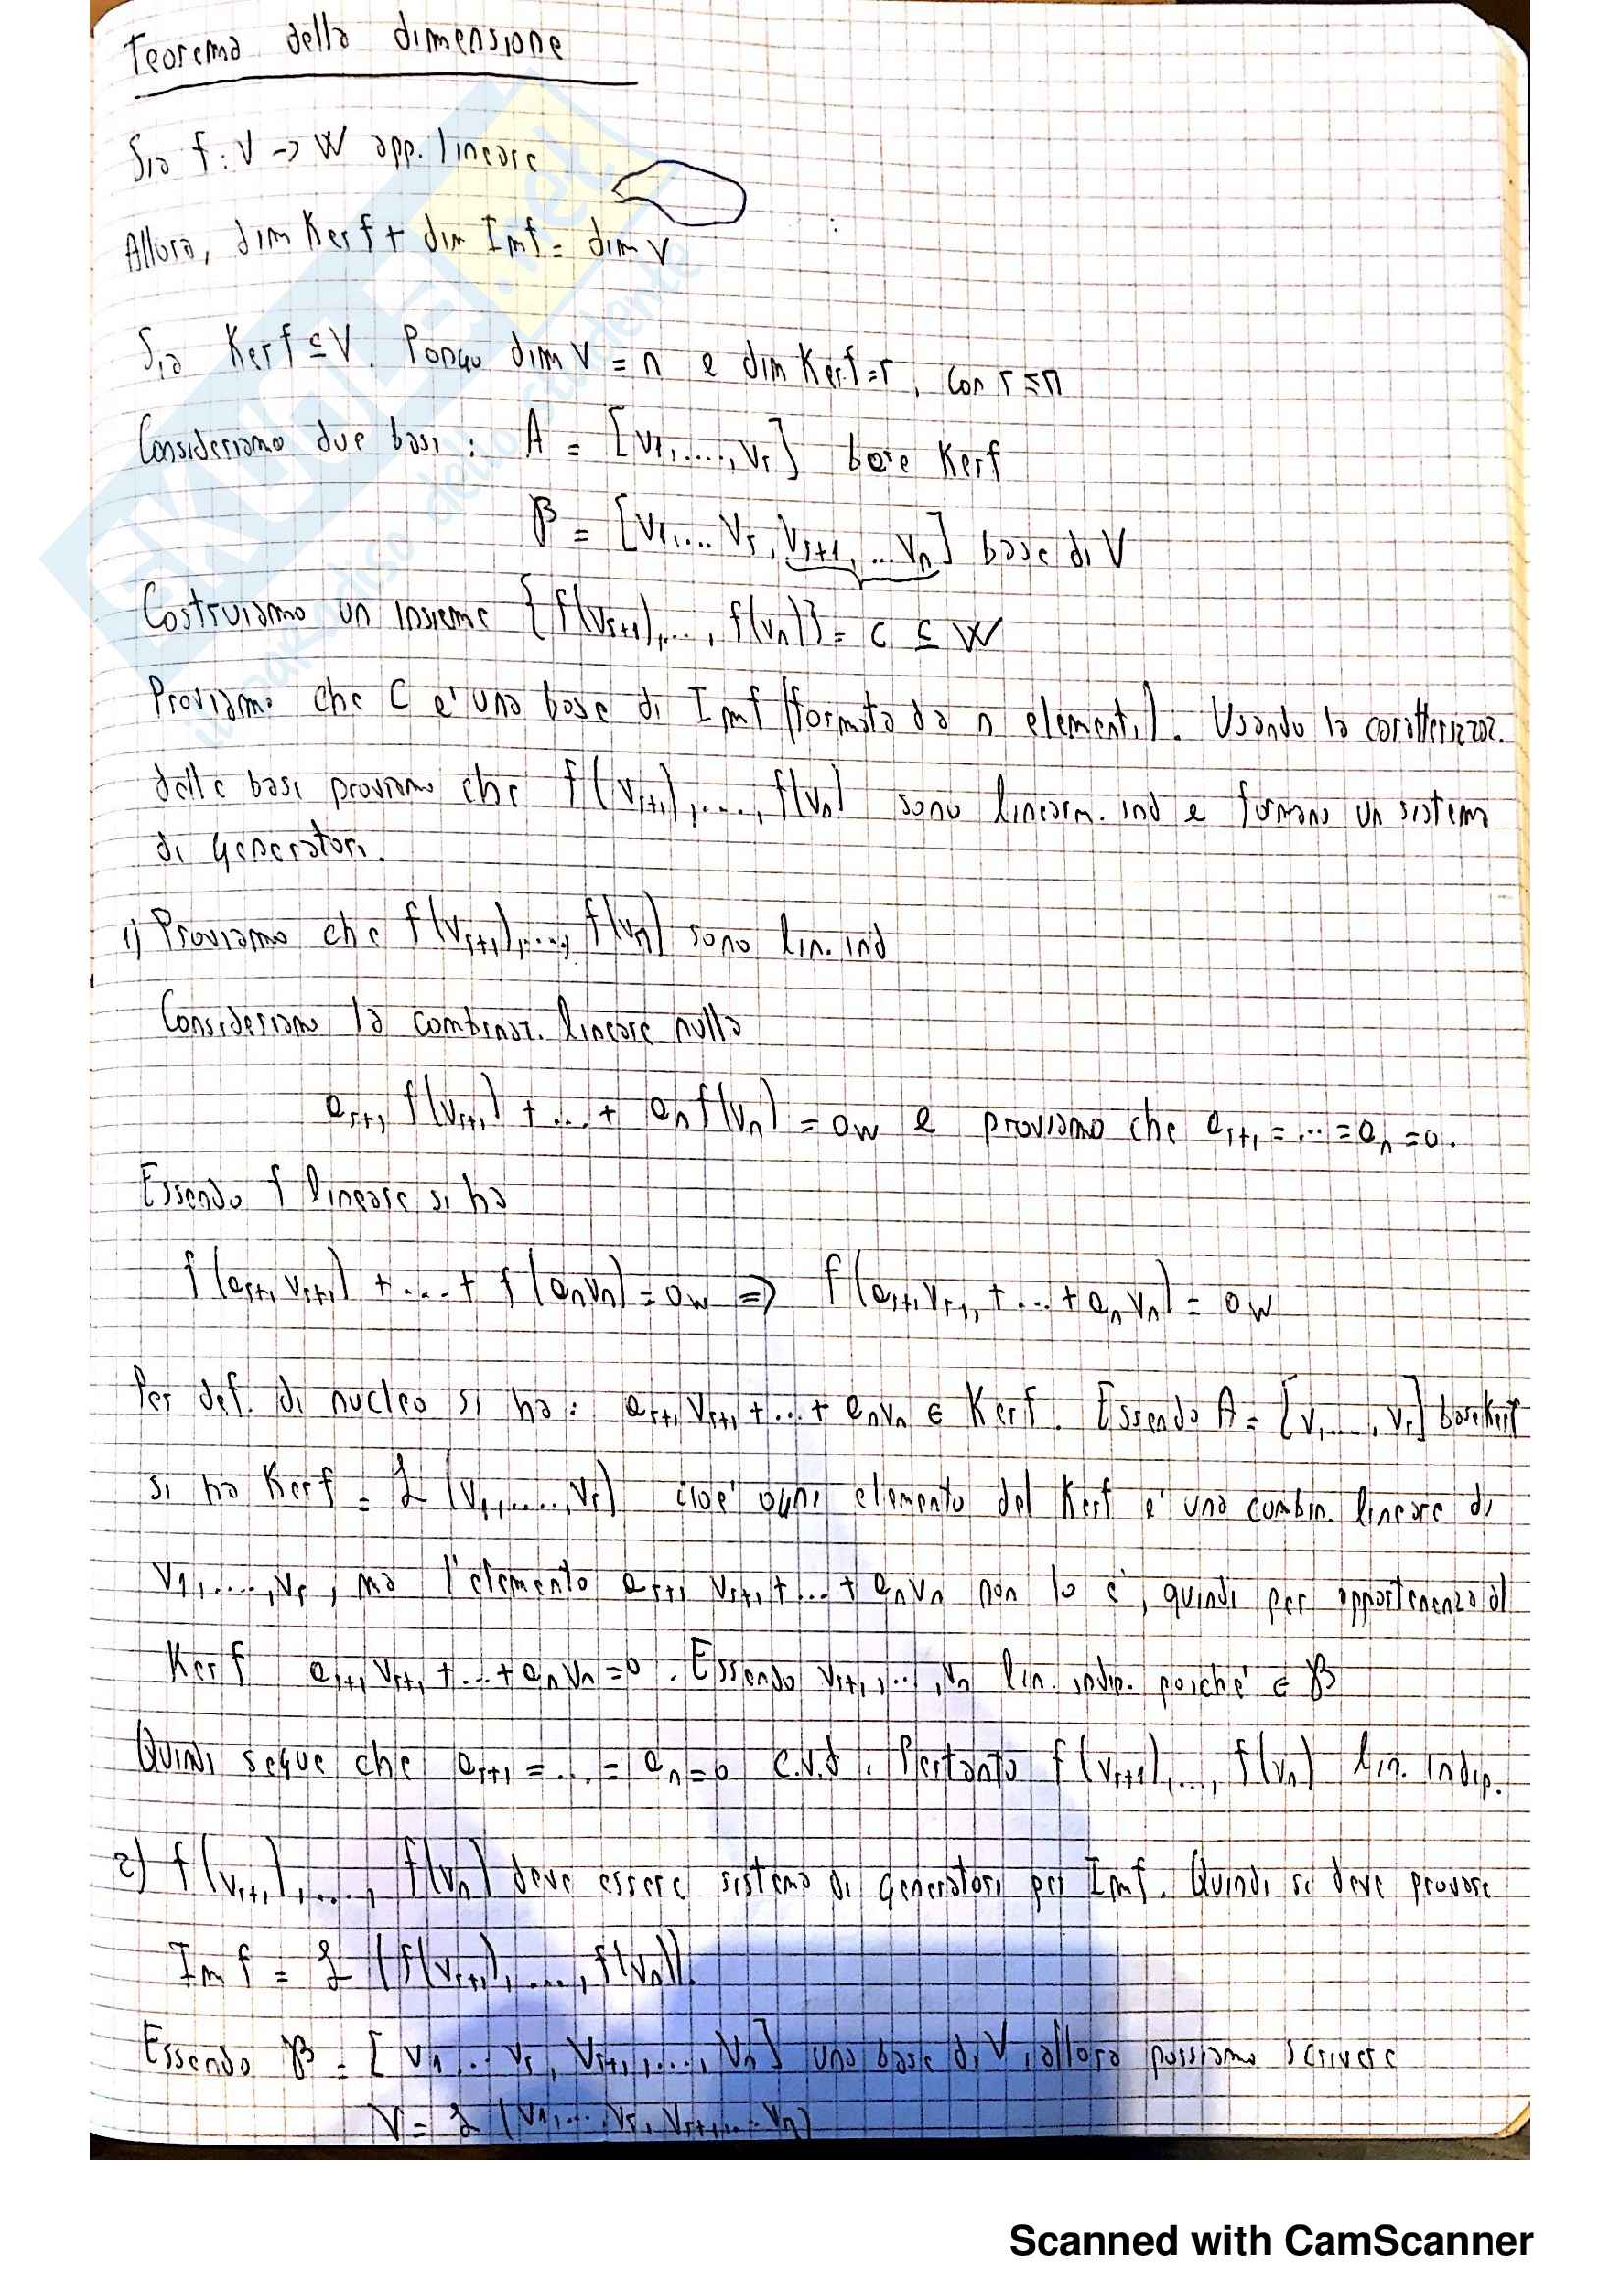 Teorema della dimensione
Sia f: V -> W app. lineare
Allora, dim Kerf + dim Imf = dim V
Sia Kerf ⊆ V. Pongo dim V = n e dim Kerf = r, con r ≤ n
Consideriamo due basi: A = [v1,....,vr] base Kerf
B = [v1,... vr, vr+1, ... vn] base di V
Costruiamo un insieme {f(vr+1),..., f(vn)} = C ⊆ W
Proviamo che C e' una base di Imf (formata da n elementi). Usando la caratterizzaz.
delle basi proviamo che f(vr+1),...., f(vn) sono linearm. ind e formano un sistema
di generatori.
1) Proviamo che f(vr+1),...., f(vn) sono lin. ind
Consideriamo la combinaz. lineare nulla
ar+1 f(vr+1) + ... + an f(vn) = 0w e proviamo che ar+1 = ... = an = 0.
Essendo f lineare si ha
f(ar+1 vr+1) + .... + f(an vn) = 0w => f(ar+1 vr+1 + ... + an vn) = 0w
Per def. di nucleo si ha: ar+1 vr+1 + ... + an vn ∈ Kerf. Essendo A = [v1,...., vr] base Kerf
si ha Kerf = L (v1,....., vr) cioe' ogni elemento del Kerf e' una combin. lineare di
v1,....,vr, ma l'elemento ar+1 vr+1 + ... + an vn non lo e', quindi per appartenenza al
Kerf ar+1 vr+1 + ... + an vn = 0. Essendo vr+1,...,vn lin. indip. poiche' ∈ B
Quindi segue che ar+1 = ... = an = 0 c.v.d. Pertanto f(vr+1),..., f(vn) lin. indip.
2) f(vr+1),...., f(vn) deve essere sistema di generatori per Imf. Quindi si deve provare
Im f = L (f(vr+1),...., f(vn)).
Essendo B = [v1 ... vr, vr+1,...., vn] una base di V, allora possiamo scrivere
V = L (v1,...,vr, vr+1,... vn)
SKUOLA.net
il paradiso dello studente
Scanned with CamScanner